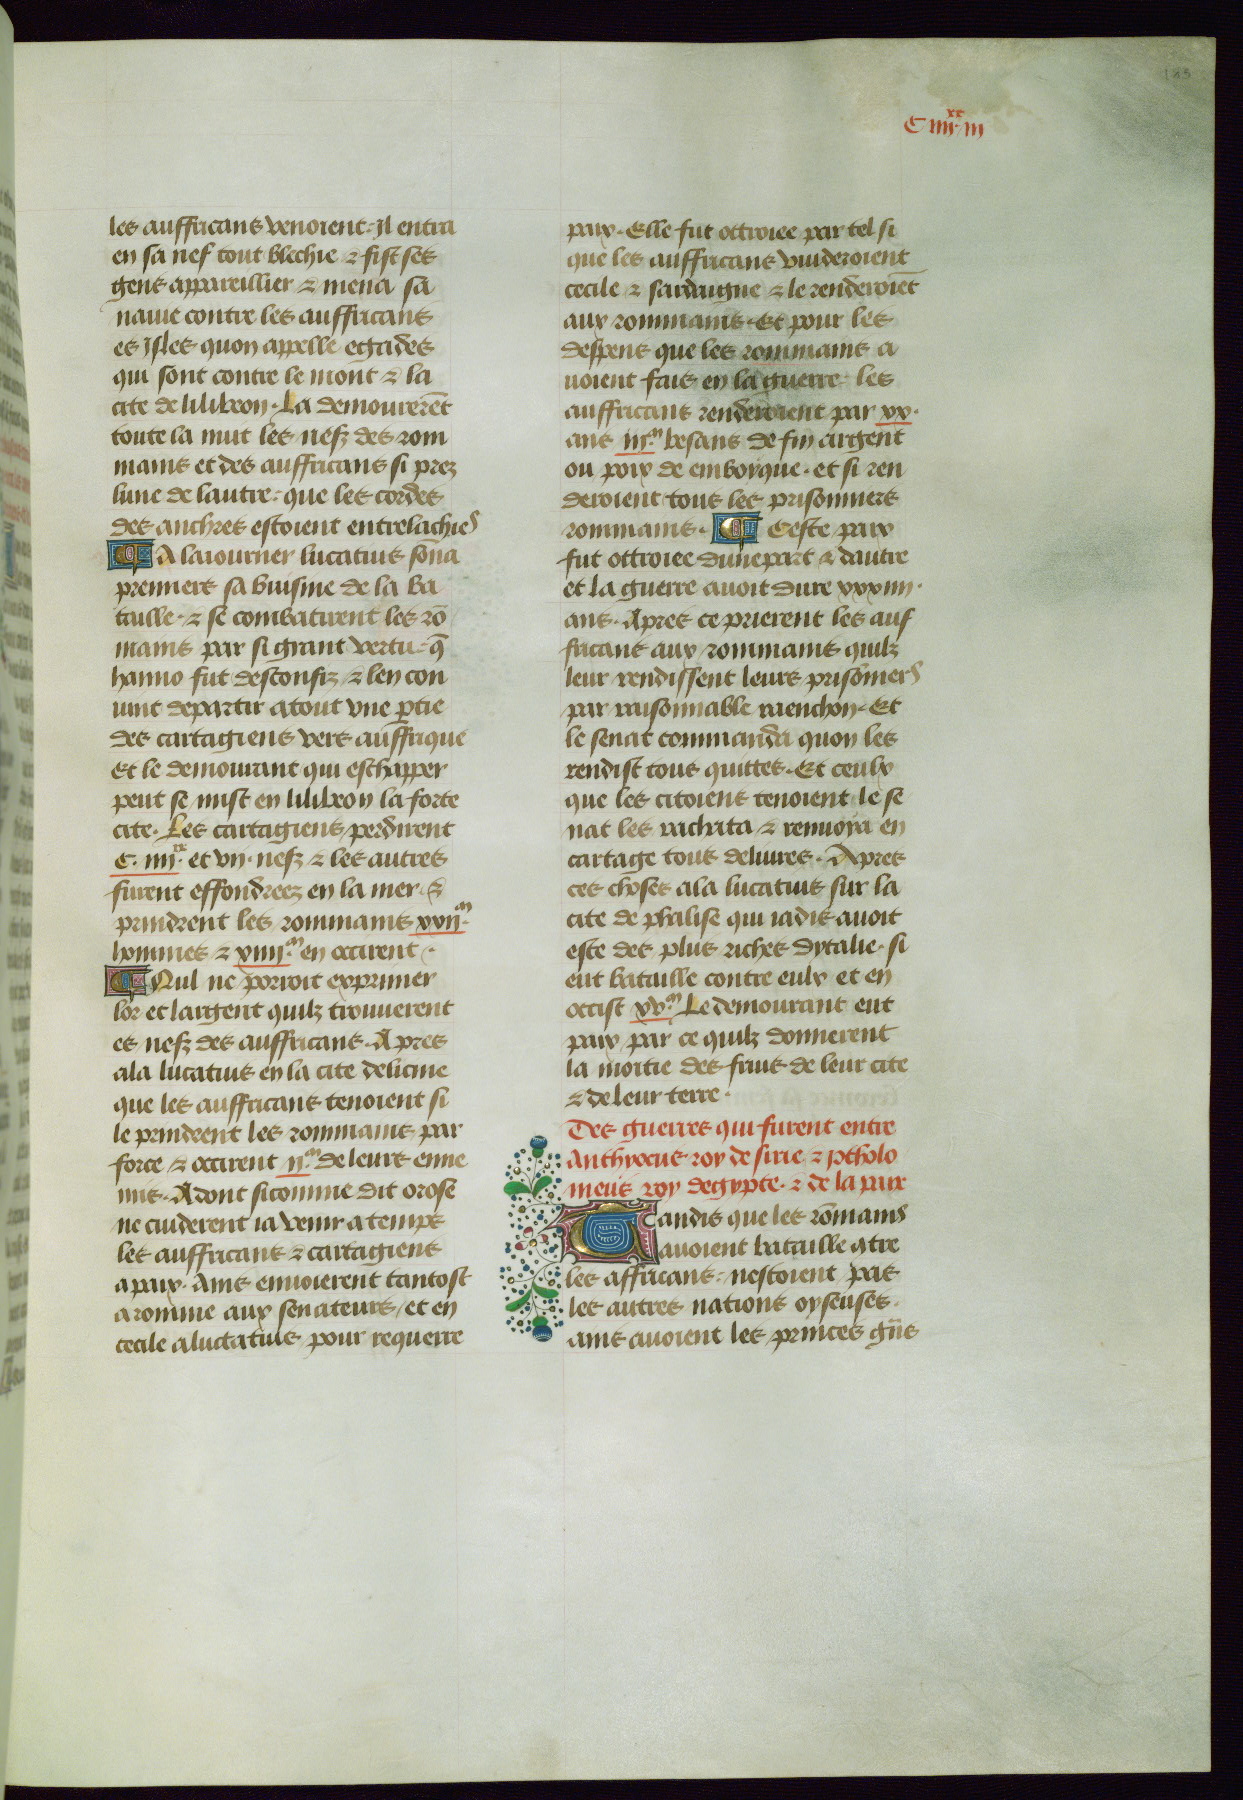 183
C iiii xx iii
les auffricans venoient. Il entra
en sa nef tout blechie & fist ses
gens appareillier & mena sa
navie contre les auffricans
es isles quon appelle egades
qui sont contre le mont & la
cite de lilibeon. La demourerēt
toute la nuit les nefz des rom
mains et des auffricans si prez
lune de lautre. que les cordes
des anchres estoient entrelachies
A laiourner lucatius sōna
premiers sa buisine de la ba
taille. & se combatirent les rō
mains par si grant vertu. q̄
hanno fut desconfiz & len con
uint departir atout vne ꝑtie
des cartagiens vers auffrique
Et le demourant qui eschapper
peut se mist en lilibeon la forte
cite. Les cartagiens perdirent
C. iiii xx. et vii. nefz & les autres
furent effondreez en la mer. &
prindrent les rommains xvii.m
hommes & xiiii.m en occirent.
Nul ne porroit exprimer
lor et largent quilz trouuerent
es nefz des auffricans. Apres
ala lucatius en la cite delicine
que les auffricans tenoient si
le prindrent les rommains par
force & occirent ii.m de leurs enne
mis. Adont sicomme dit orose
ne cuiderent ia venir a temps
les auffricans & cartagiens
a paix. Ains enuoierent tantost
a romme aux senateurs et en
cecile a luctatius pour requerre
paix. Elle fut ottroiee par tel si
que les auffricans vuideroient
cecile & sardaigne & le renderoiēt
aux rommains. Et pour les
despens que les rommains a
uoient fais en la guerre les
auffricans renderoient par xx.
ans iii.m besans de fin argent
ou poix de emboyque. et si ren
deroient tous les prisonniers
rommains. Ceste paix
fut ottroiee dune part & dautre
et la guerre auoit dure xxxiiii.
ans. Apres ce prierent les auf
fricans aux rommains quilz
leur rendissent leurs prisōniers
par raisonnable raenchon. Et
le senat commanda quon les
rendist tous quittes. Et ceulx
que les citoiens tenoient le se
nat les rachata & renuoya en
cartage tous deliures. Apres
ces choses ala lucatius sur la
cite de phalise qui iadis auoit
este des plus riches dytalie. si
eut bataille contre eulx et en
occist xv.m Le demourant eut
paix par ce quilz donnerent
la moitie des fruis de leur cite
& de leur terre.
Des guerres qui furent entre
Anthyocus roy de sirie & ptholo
meus roy degypte. & de la paix
Tandis que les rōmains
auoient bataille ꝯtre
les affricans. nestoient pas
les autres nations oyseuses.
ains auoient les princes gūs